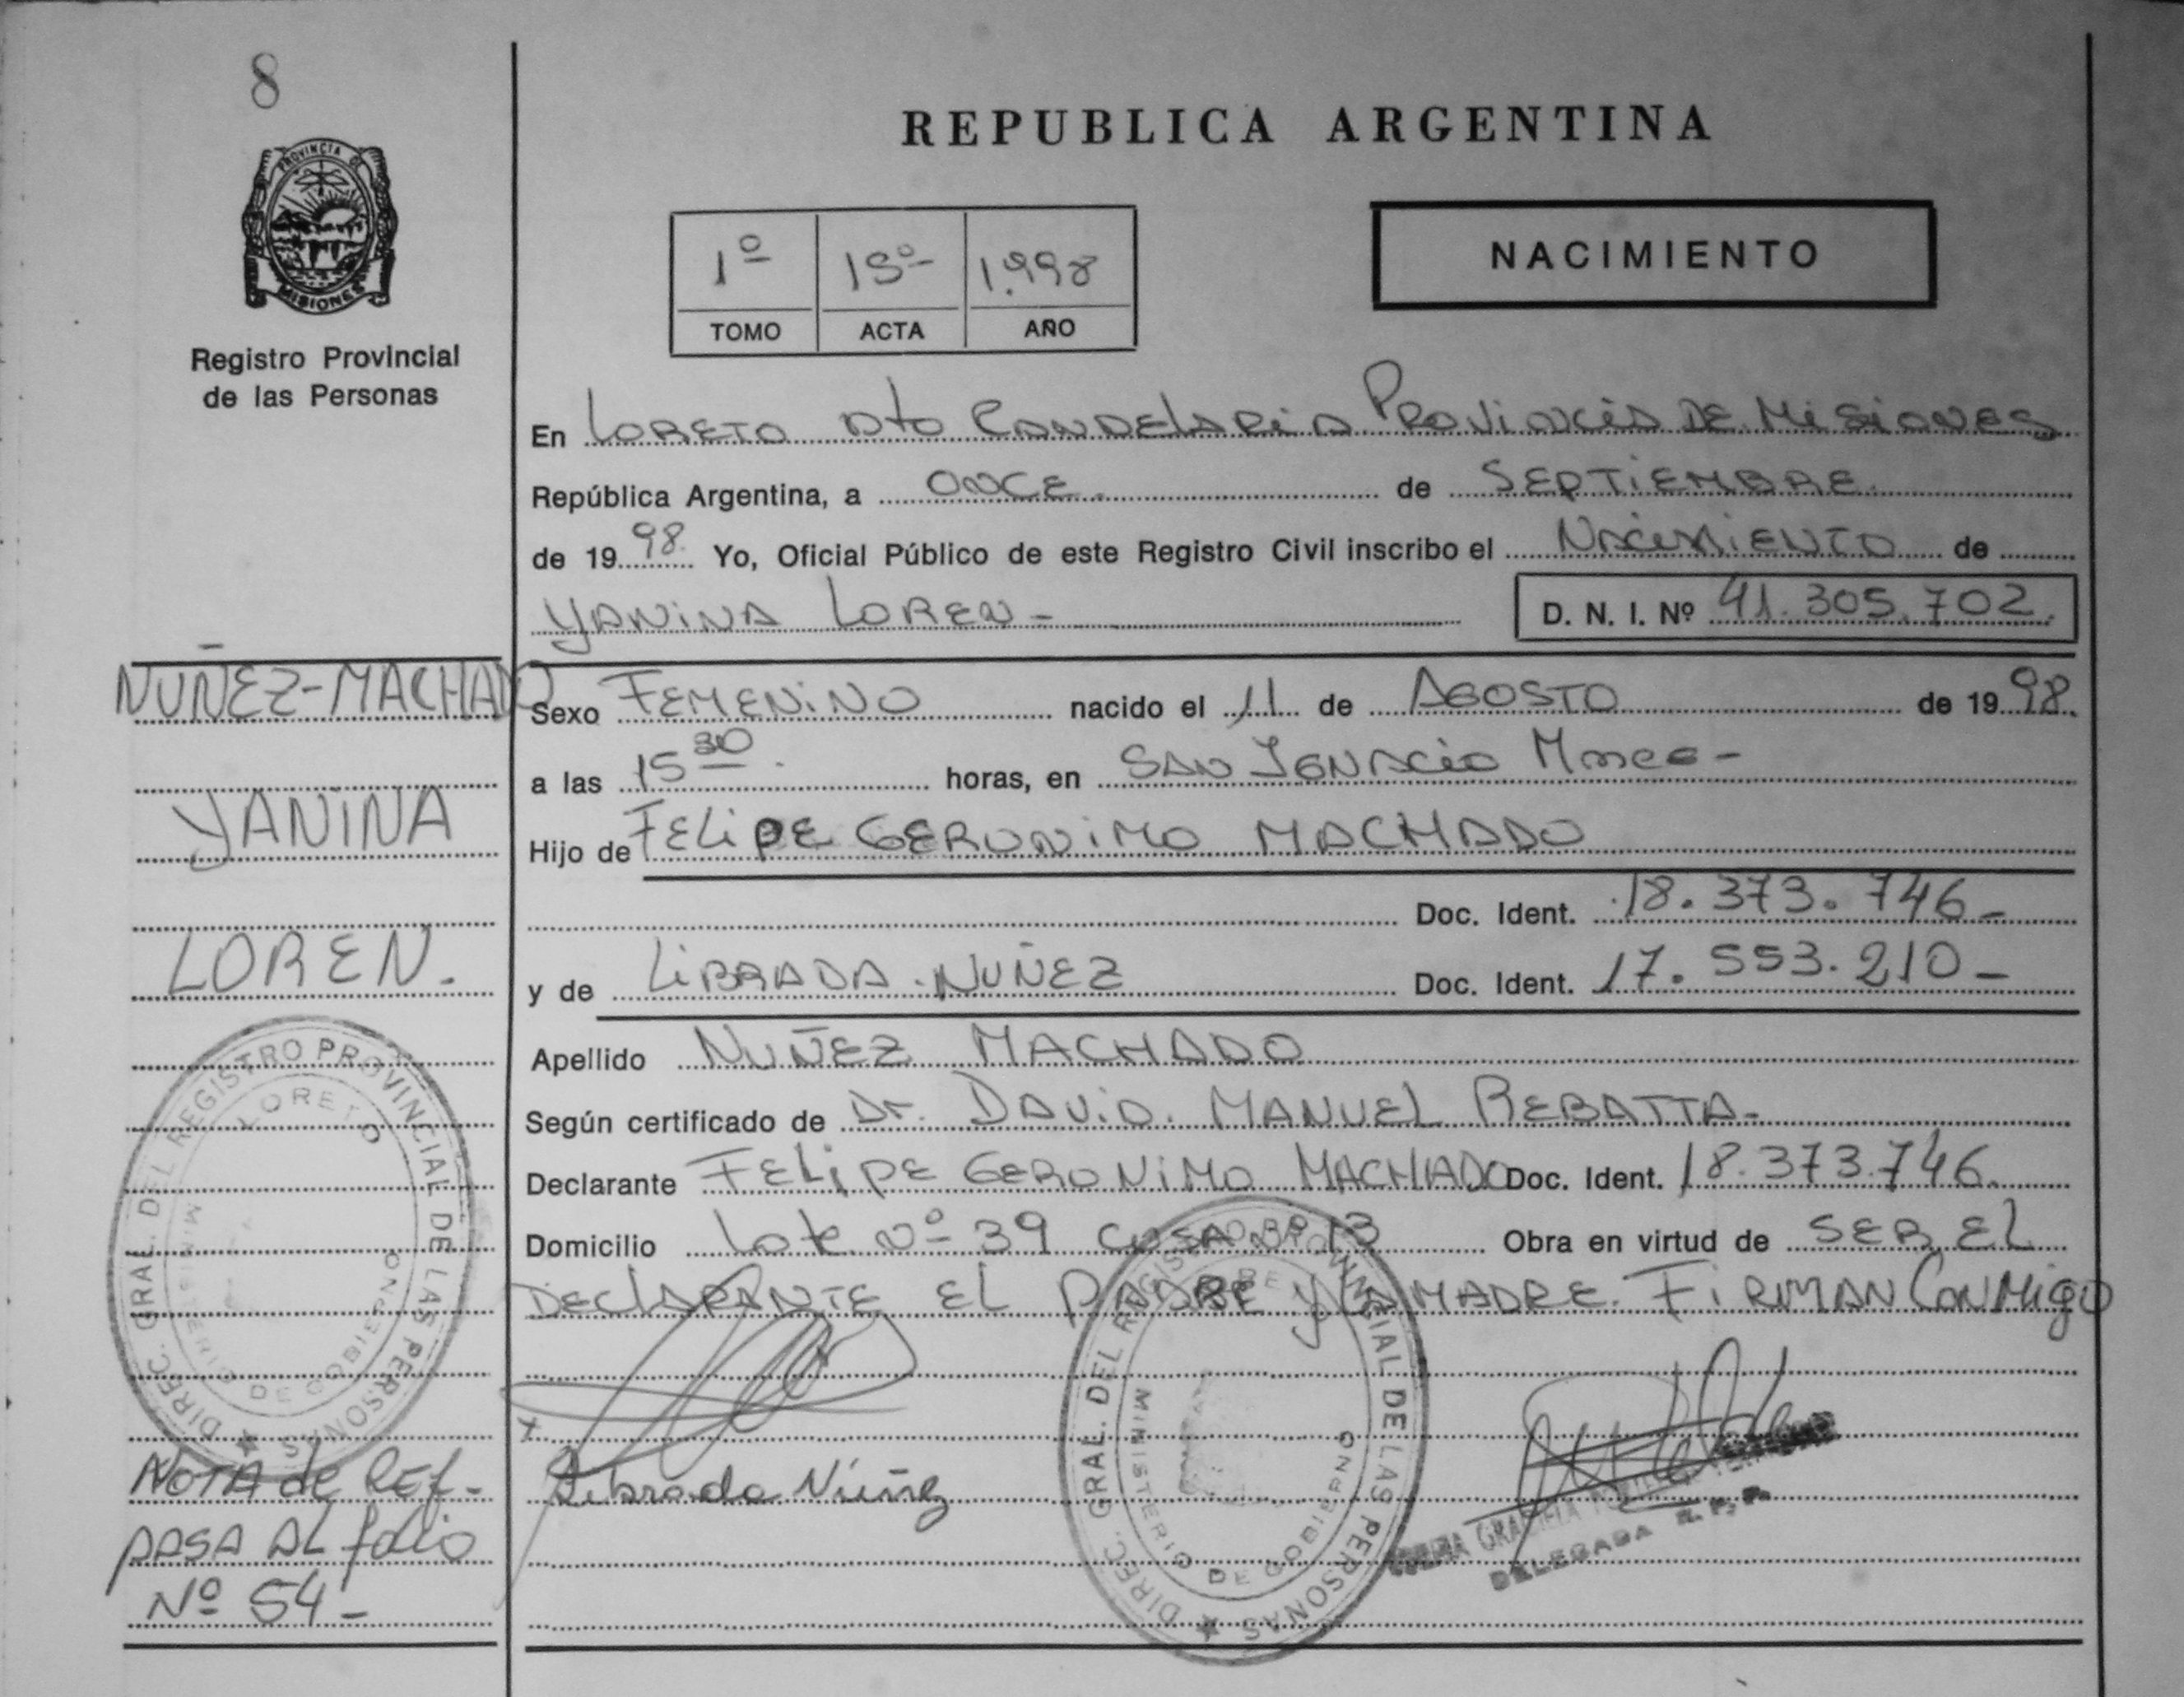 8
REPUBLICA ARGENTINA
PROVINCIA DE
MISIONES
Registro Provincial
de las Personas
1º 15º 1.998
TOMO ACTA AÑO
NACIMIENTO
En LORETO Dto CANDELARIA PROVINCIA DE MISIONES
República Argentina, a ONCE. de SEPTIEMBRE.
de 1998. Yo, Oficial Público de este Registro Civil inscribo el NACIMIENTO de
YANINA LOREN-
D. N. I. Nº 41.305.702.
NUÑEZ-MACHADO
YANINA
LOREN.
Sexo FEMENINO nacido el 11 de AGOSTO de 1998.
a las 15 30. horas, en SAN IGNACIO Mnes-
Hijo de FELIPE GERONIMO MACHADO
Doc. Ident. 18.373.746-
y de LIBRADA NUÑEZ Doc. Ident. 17.553.210-
Apellido NUÑEZ MACHADO
Según certificado de Dr. DAVID. MANUEL REBATTA-
Declarante FELIPE GERONIMO MACHADO Doc. Ident. 18.373.746.
Domicilio Lote Nº 39 CASA Nº 13 Obra en virtud de SER EL
DECLARANTE EL PADRE Y LA MADRE. FIRMAN CONMIGO
Librada Núñez
DIREC. GRAL. DEL REGISTRO PROVINCIAL DE LAS PERSONAS
LORETO
MINISTERIO DE GOBIERNO
DIREC. GRAL. DEL REGISTRO PROVINCIAL DE LAS PERSONAS
MINISTERIO DE GOBIERNO
GRACIELA
DELEGADA R. P. P.
NOTA de REF-
PASA AL folio
Nº 54-